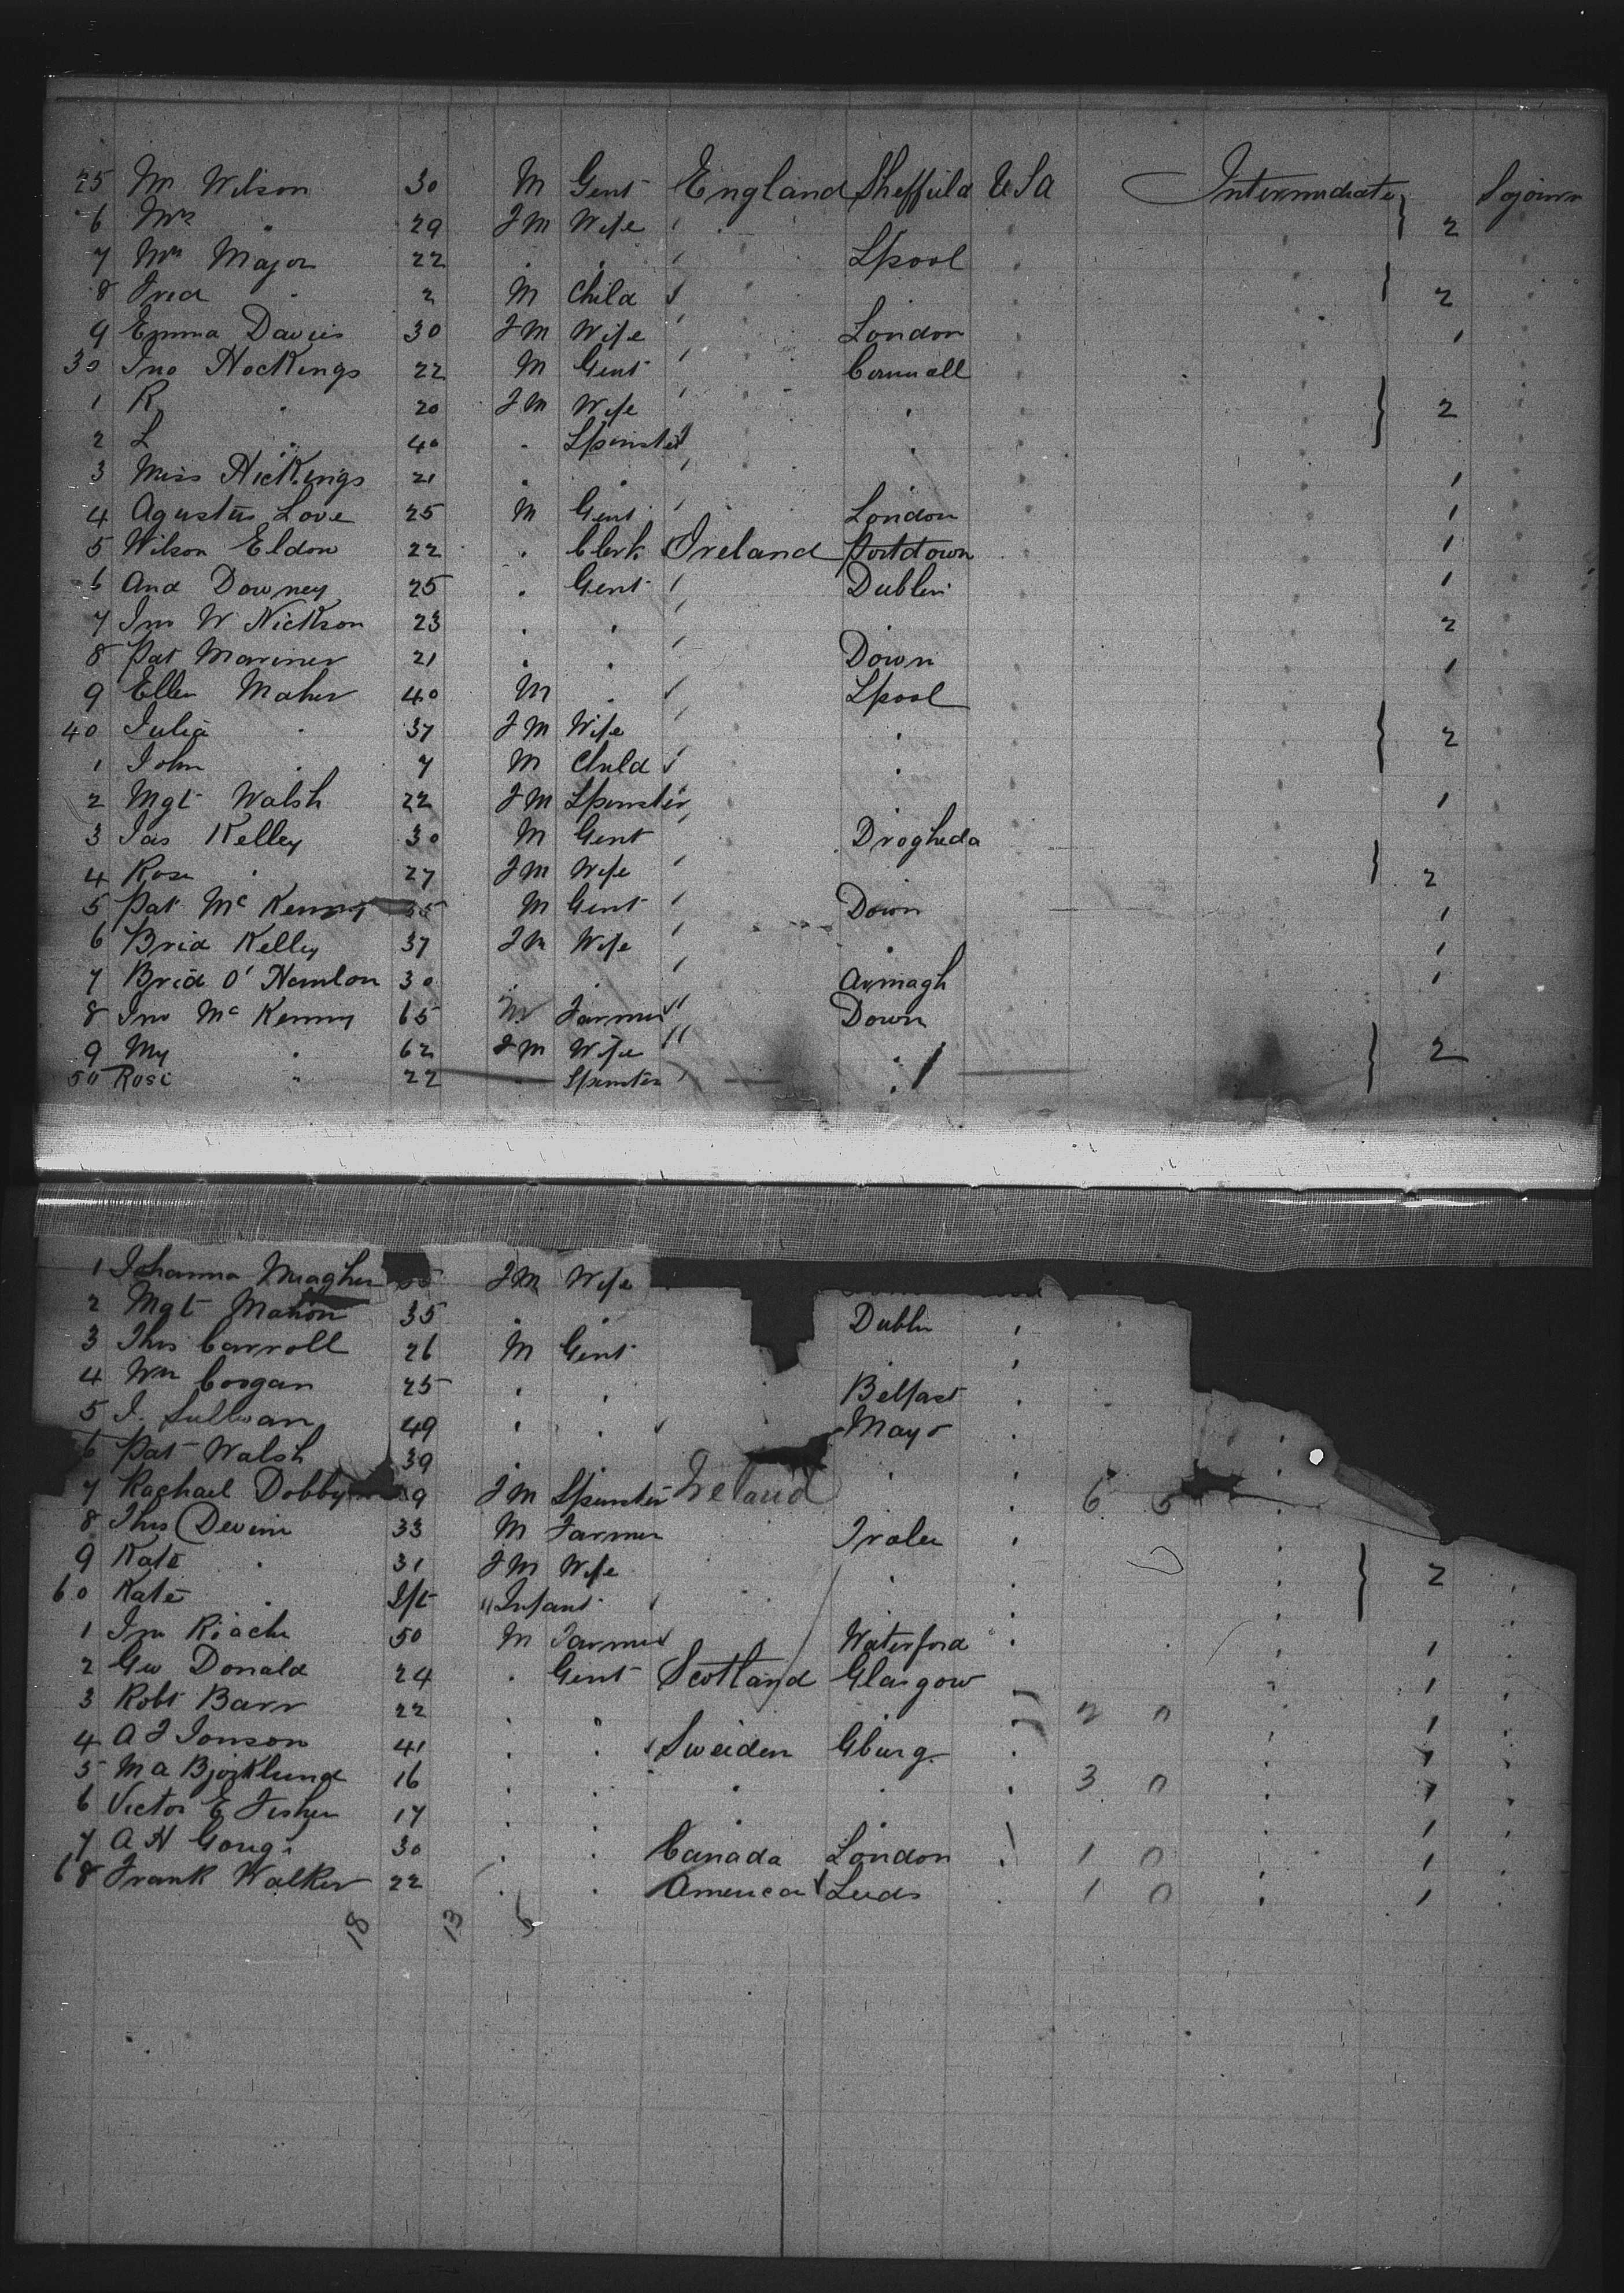 25 Mr Wilson 30 M Gent England Sheffield USA Intermediate Sojourn
6 Mrs " 29 F M Wife " 2
7 Mrs Major 22 " " " Lpool
8 Fred " 2 M Child " 2
9 Emma Davies 30 F M Wife " London 1
30 Jno Hockings 22 M Gent " Cornwall
1 R " 20 F M Wife " " 2
2 L " 40 " Spinster "
3 Miss Hickings 21 " " " " 1
4 Agustus Love 25 M Gent " London 1
5 Wilson Eldon 22 " Clerk Ireland Portdown 1
6 And Downey 25 " Gent " Dublin 1
7 Jno W Nickson 23 " " " " 2
8 Pat Mariner 21 " " " Down 1
9 Ellen Maher 40 M " " Lpool
40 Julia " 37 F M Wife " " 2
1 John " 7 M Child " "
2 Mgt Walsh 22 F M Spinster " 1
3 Jas Kelley 30 M Gent " Drogheda
4 Rose " 27 F M Wife " 2
5 Pat Mc Kenny M Gent " Down 1
6 Brid Kelley 37 F M Wife " " 1
7 Brid O' Hanlon 30 " " Armagh 1
8 Jno Mc Kenny 65 M Farmer " Down
9 My " 62 F M Wife " " 2
50 Rose " 22 " Spinster " "
1 Johanna Meagher F M Wife
2 Mgt Mahon 35 " " Dublin "
3 Thos Carroll 26 M Gent "
4 Wm Coogan 25 " " Belfast "
5 J. Sullivan 49 " " Mayo "
6 Pat Walsh 39 " " "
7 Rachael Dobby F M Spinster Ireland " 6
8 Thos Devine 33 M Farmer Tralee "
9 Kate " 31 F M Wife " " 2
60 Kate " Ift " Infant " "
1 Jno Riach 50 M Farmer Waterford " 1
2 Geo Donald 24 " Gent Scotland Glasgow 1
3 Robt Barr 22 " " 2 0 1
4 A J Jonson 41 " " Sweiden Gburg " 1
5 M A Bjorklund 16 " " " " " 3 0 1
6 Victor E Fisher 17 " " 1
7 A H 30 " " Canada London " 1 0 1
68 Frank Walker 22 " " America Leeds " 1 0 1
18 13